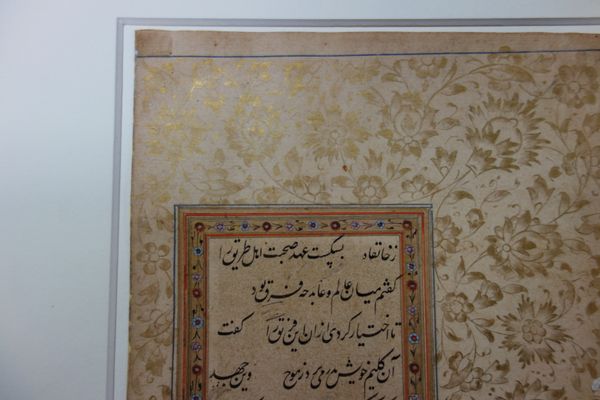 زخانقاه بشکست عهد صحبت اهل طریق را
گفتم میان عالم و عابد چه فرق بود
تا اختیار کردی ازان این فریق را گفت
آن گلیم خویش می برد ز موج وین جهد